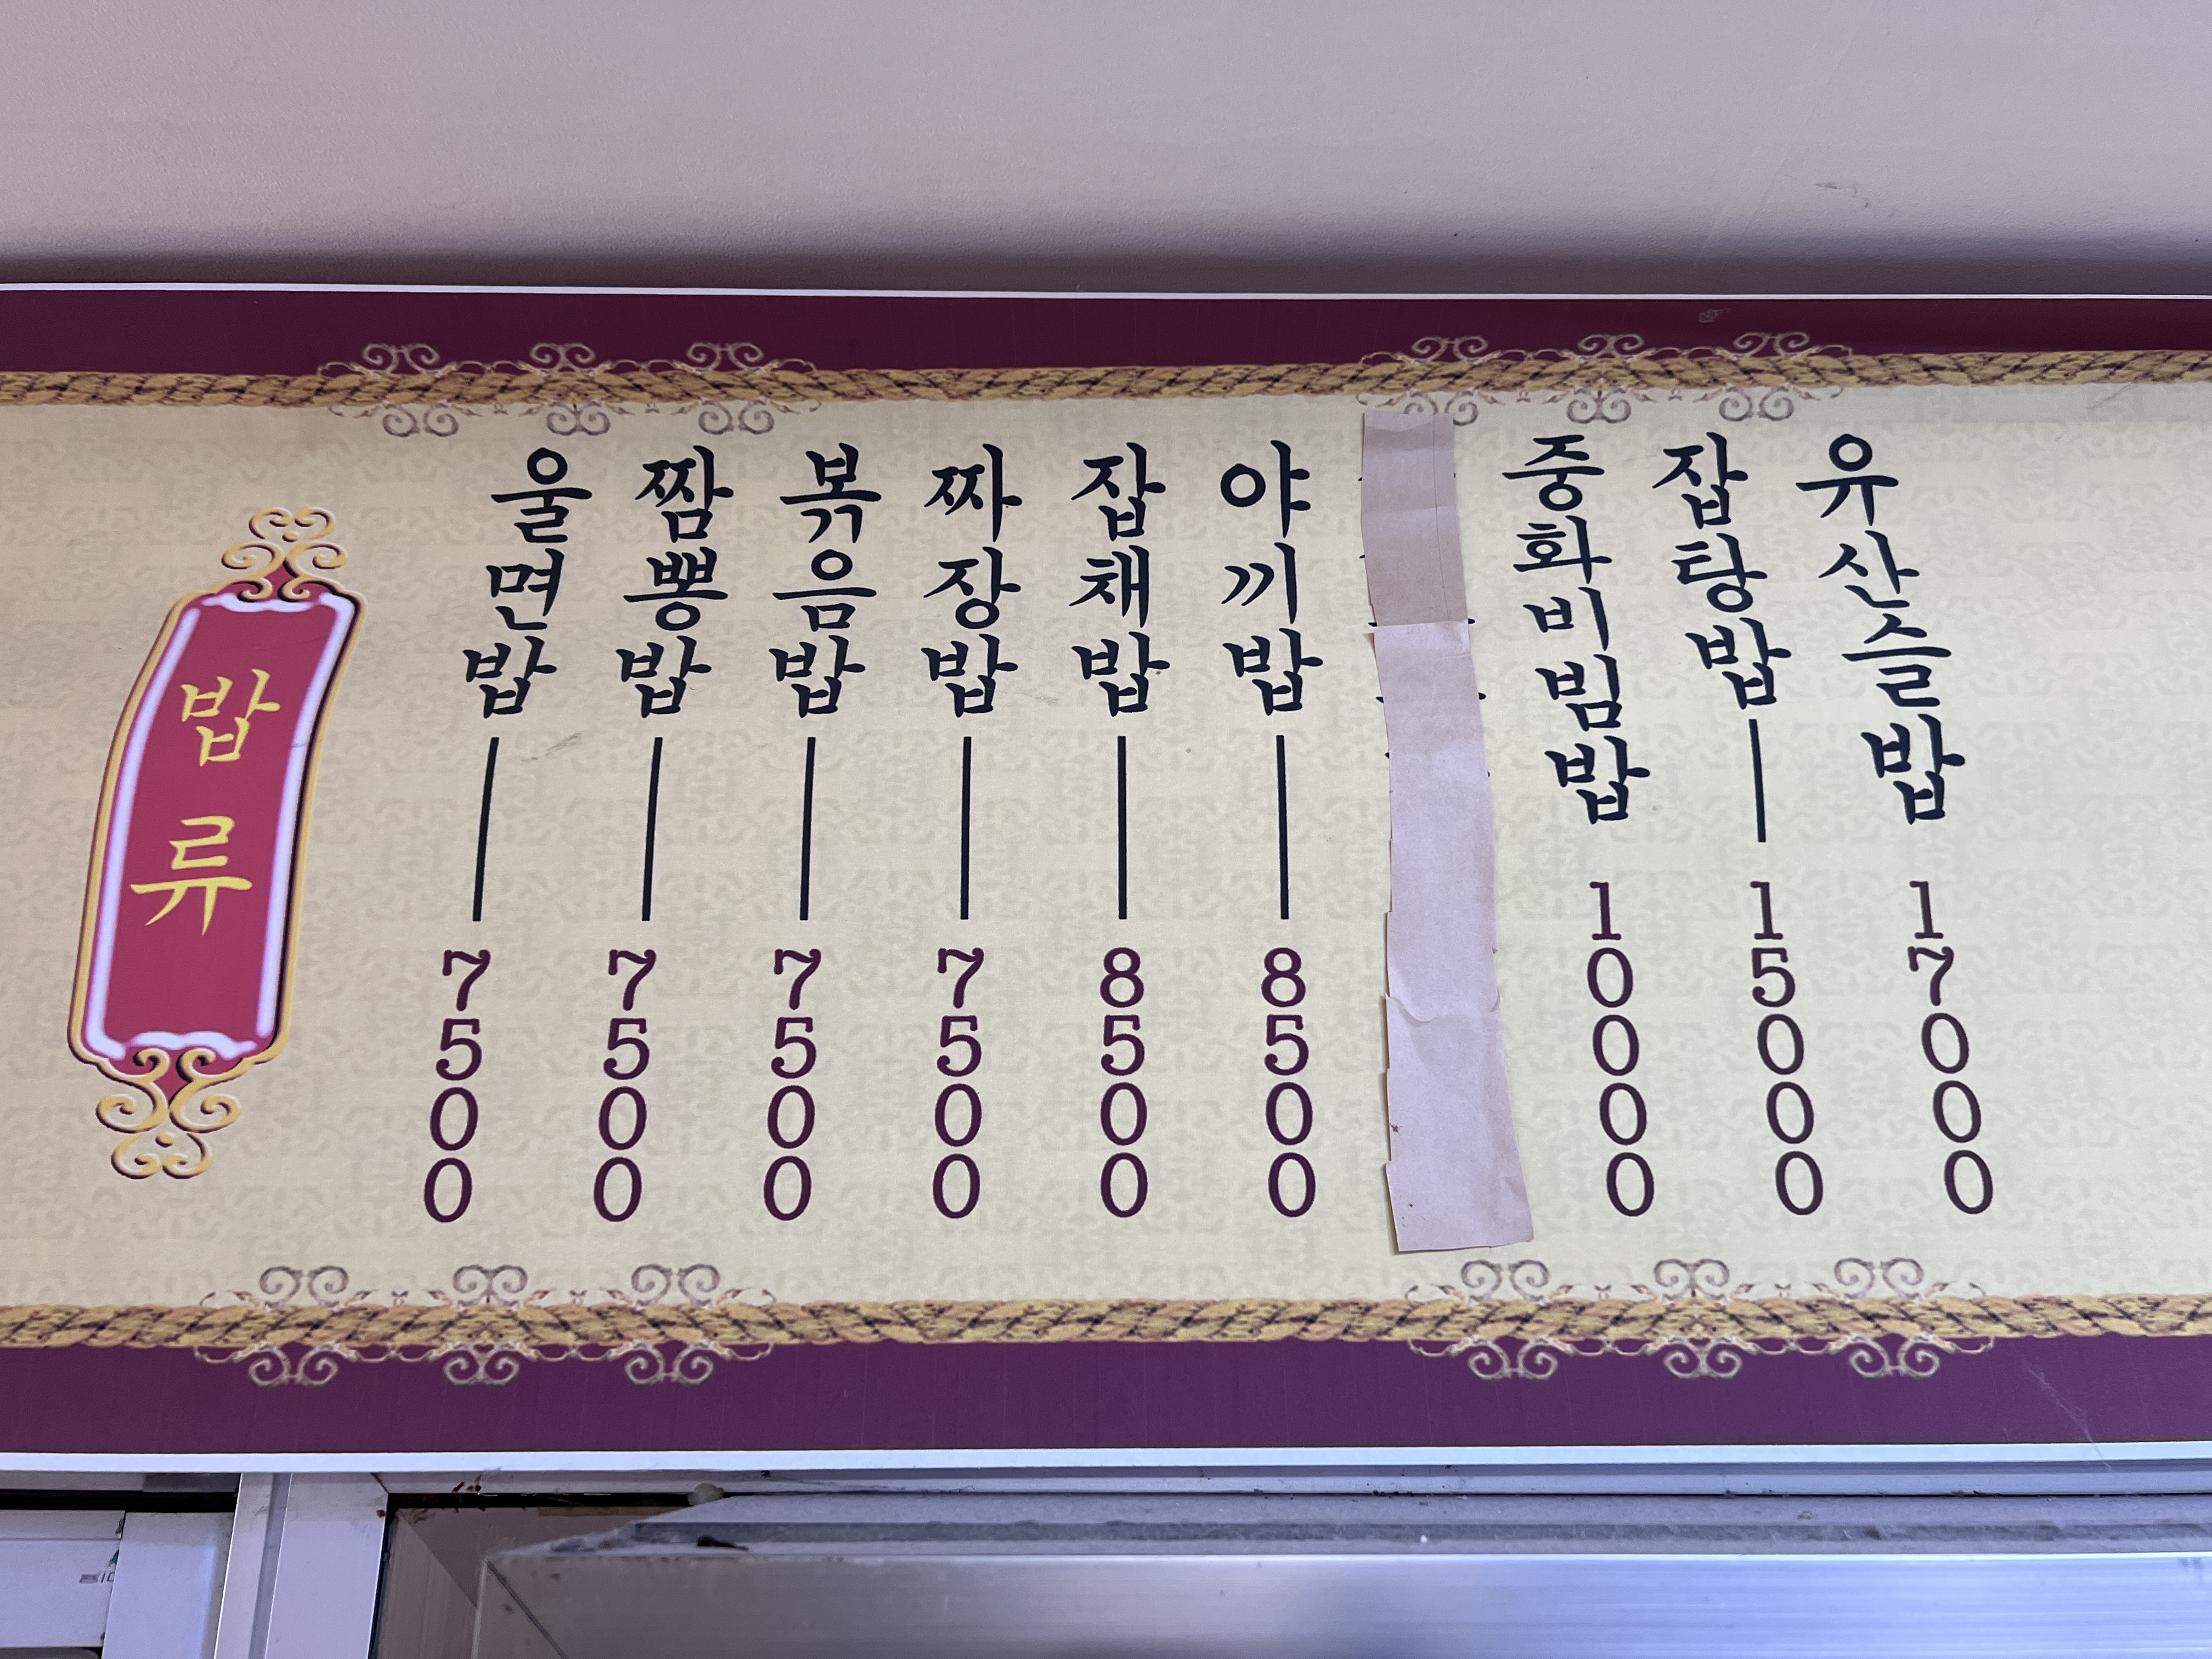 밥류
울면밥 7500
짬뽕밥 7500
볶음밥 7500
짜장밥 7500
잡채밥 8500
야끼밥 8500
중화비빔밥 10000
잡탕밥 15000
유산슬밥 17000